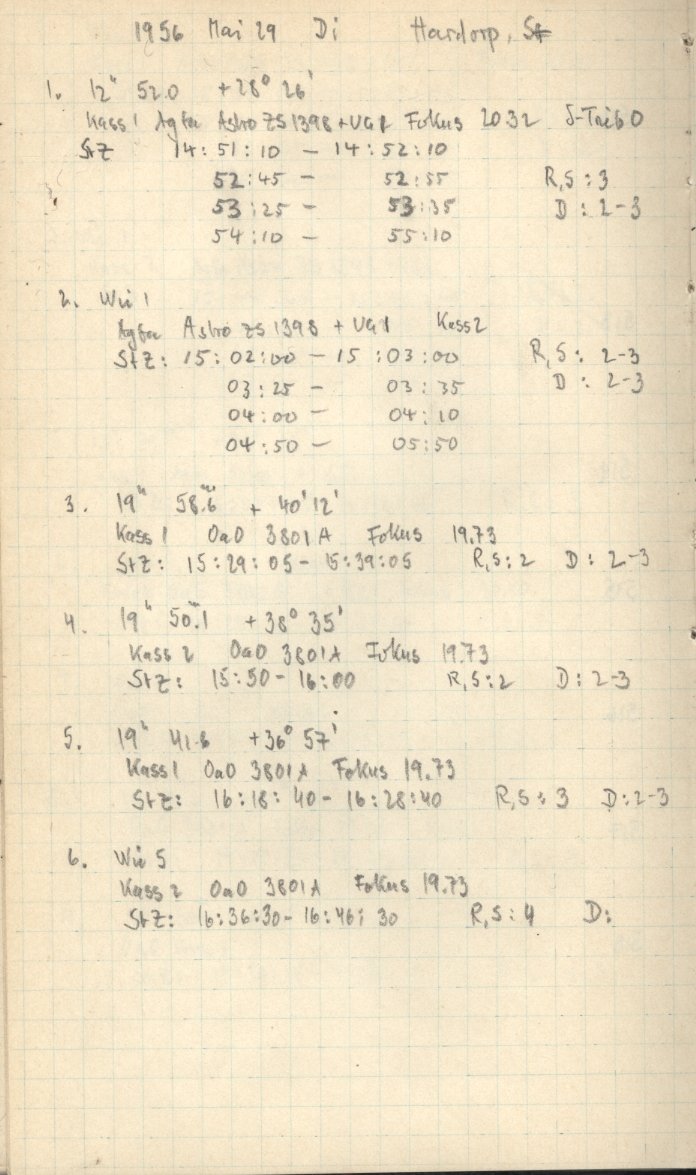 1956 Mai 29 Di Hardorp, St
1. 12h 52.0 +28° 26'
Kass 1 Agfa Astro ZS 1398 + UG1 Fokus 20.32 δ-Trieb 0
StZ 14:51:10 – 14:52:10
52:45 – 52:55 R,S: 3
53:25 – 53:35 D: 2-3
54:10 – 55:10
2. Wü 1
Agfa Astro ZS 1398 + UG1 Kass 2
StZ: 15:02:00 – 15:03:00 R,S: 2-3
03:25 – 03:35 D: 2-3
04:00 – 04:10
04:50 – 05:50
3. 19h 58.6m + 40' 12'
Kass 1 OaO 3801A Fokus 19.73
StZ: 15:29:05 – 15:39:05 R,S: 2 D: 2-3
4. 19h 50m.1 +38° 35'
Kass 2 OaO 3801A Fokus 19.73
StZ: 15:50 – 16:00 R,S: 2 D: 2-3
5. 19h 41.6 +36° 57'
Kass 1 OaO 3801A Fokus 19.73
StZ: 16:18:40 – 16:28:40 R,S: 3 D: 2-3
6. Wü 5
Kass 2 OaO 3801A Fokus 19.73
StZ: 16:36:30 – 16:46:30 R,S: 4 D: